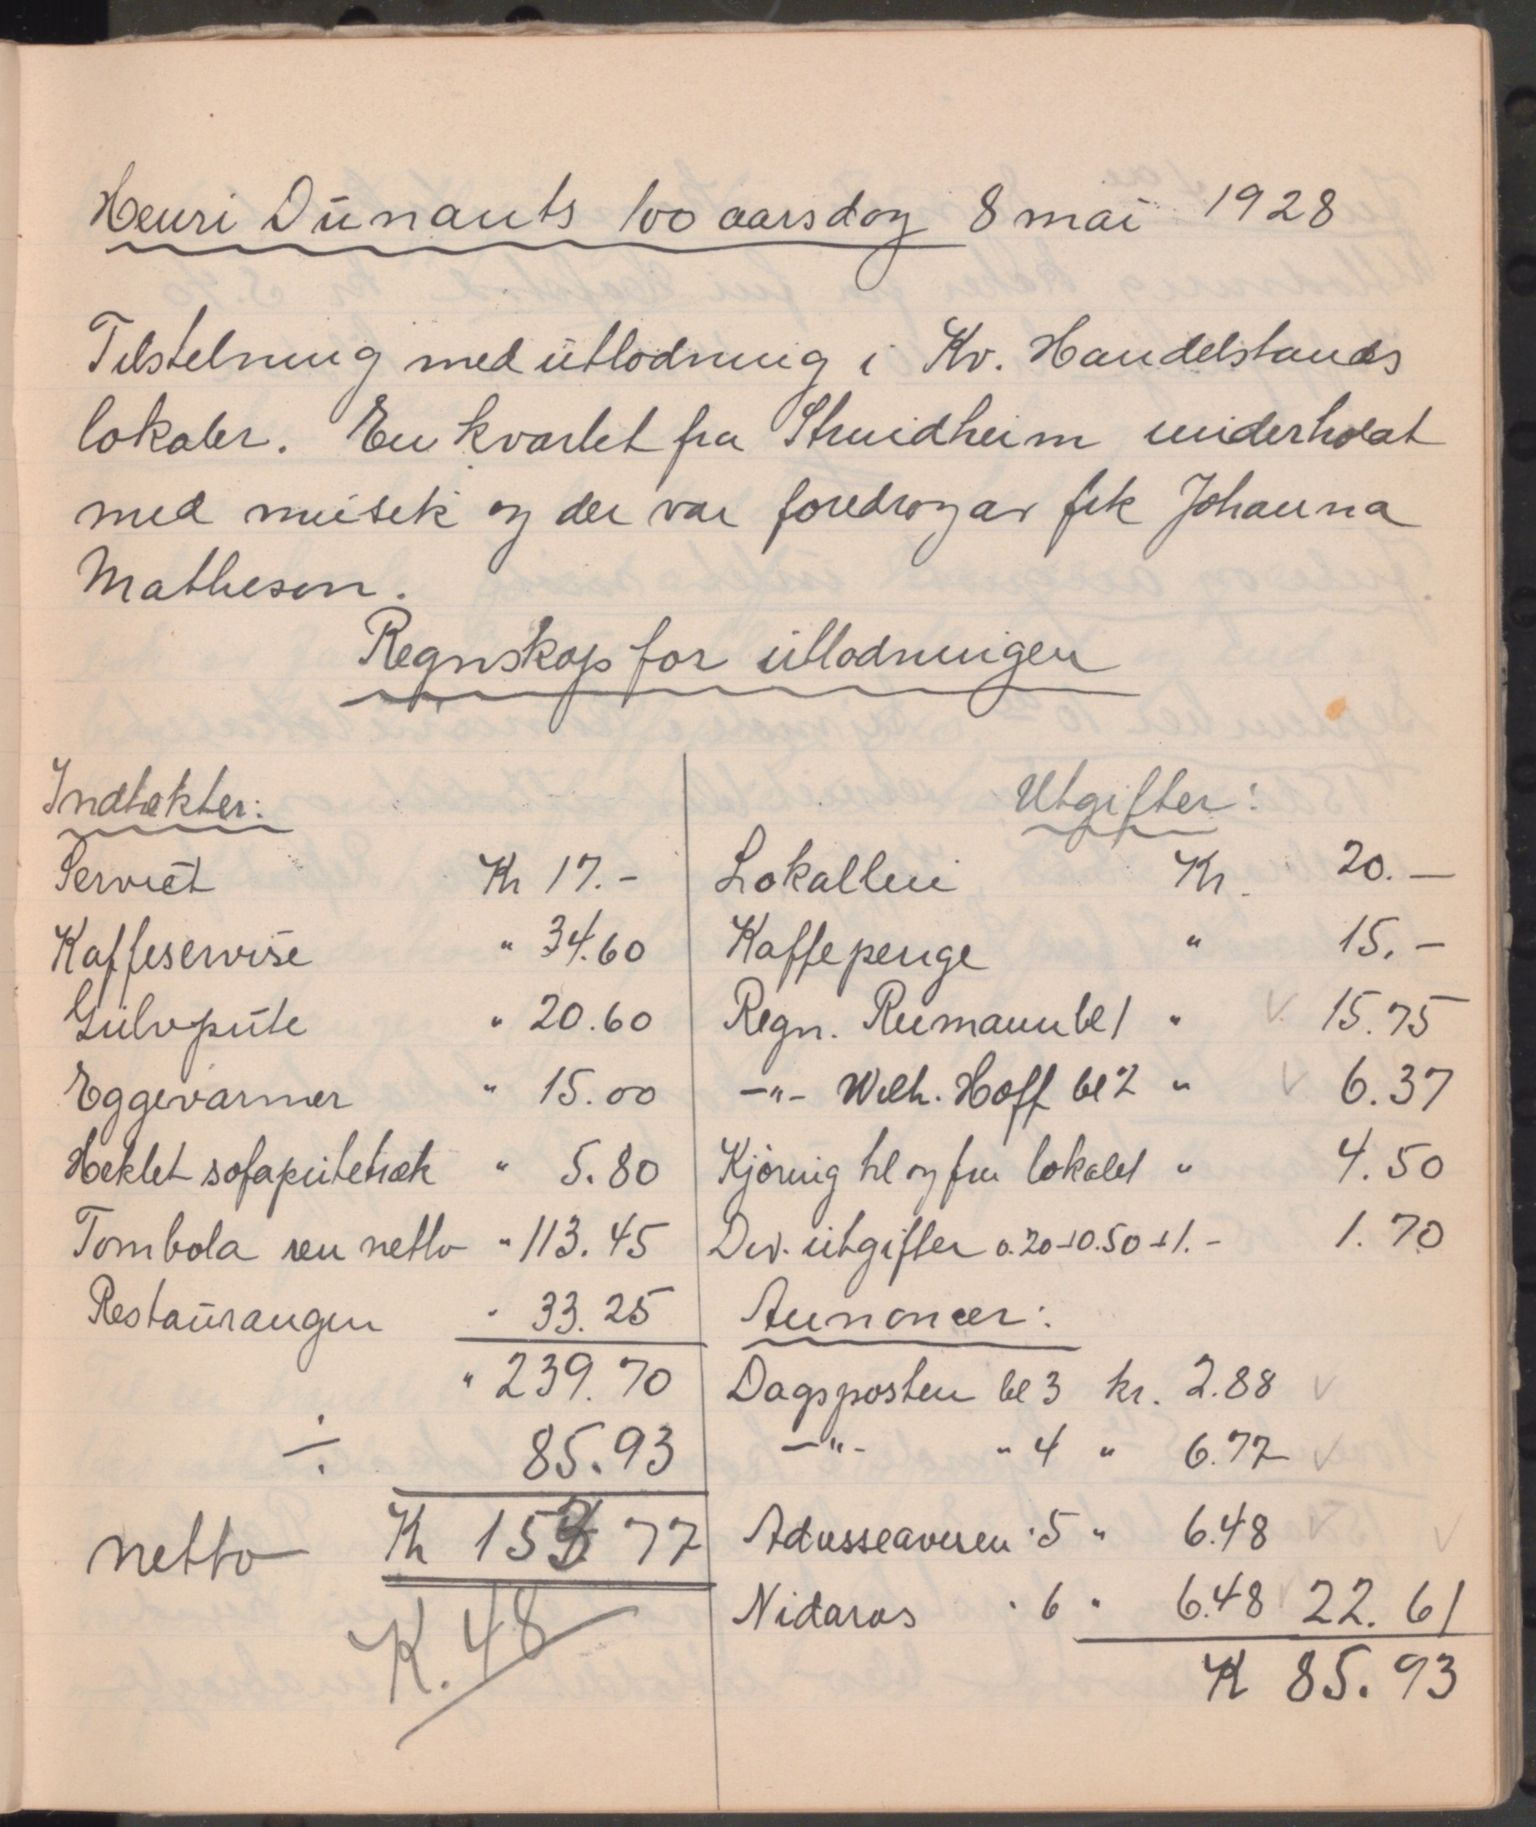 Henri Dunants 100 aarsdag 8 mai 1928
Tilstelning med utlodning i Kv. Handelstands
lokaler. En kvartet fra Strindheim underholdt
med musik og der var foredrag av frk Johanna
Matheson.
Regnskap for utlodningen
Indtækter:
Serviet Kr 17.-
Kaffeservise " 34.60
Gulvpute " 20.60
Eggevarmer " 15.00
Heklet sofaputetræk " 5.80
Tombola ren netto " 113.45
Restaurangen " 33.25
" 239.70
÷ 85.93
netto Kr 153.77
K. 48
Utgifter:
Lokalleie Kr. 20.—
Kaffepenge " 15.-
Regn. Reimann bl 1 " 15.75
—"— Wilh. Hoff bl 2 " 6.37
Kjøring til og fra lokalet " 4.50
Div. utgifter 0.20+0.50+1.- 1.70
Annoncer:
Dagsposten bl 3 kr. 2.88
—"— " 4 " 6.77
Adresseavisen " 5 " 6.48
Nidaros " 6 " 6.48 22.61
K 85.93